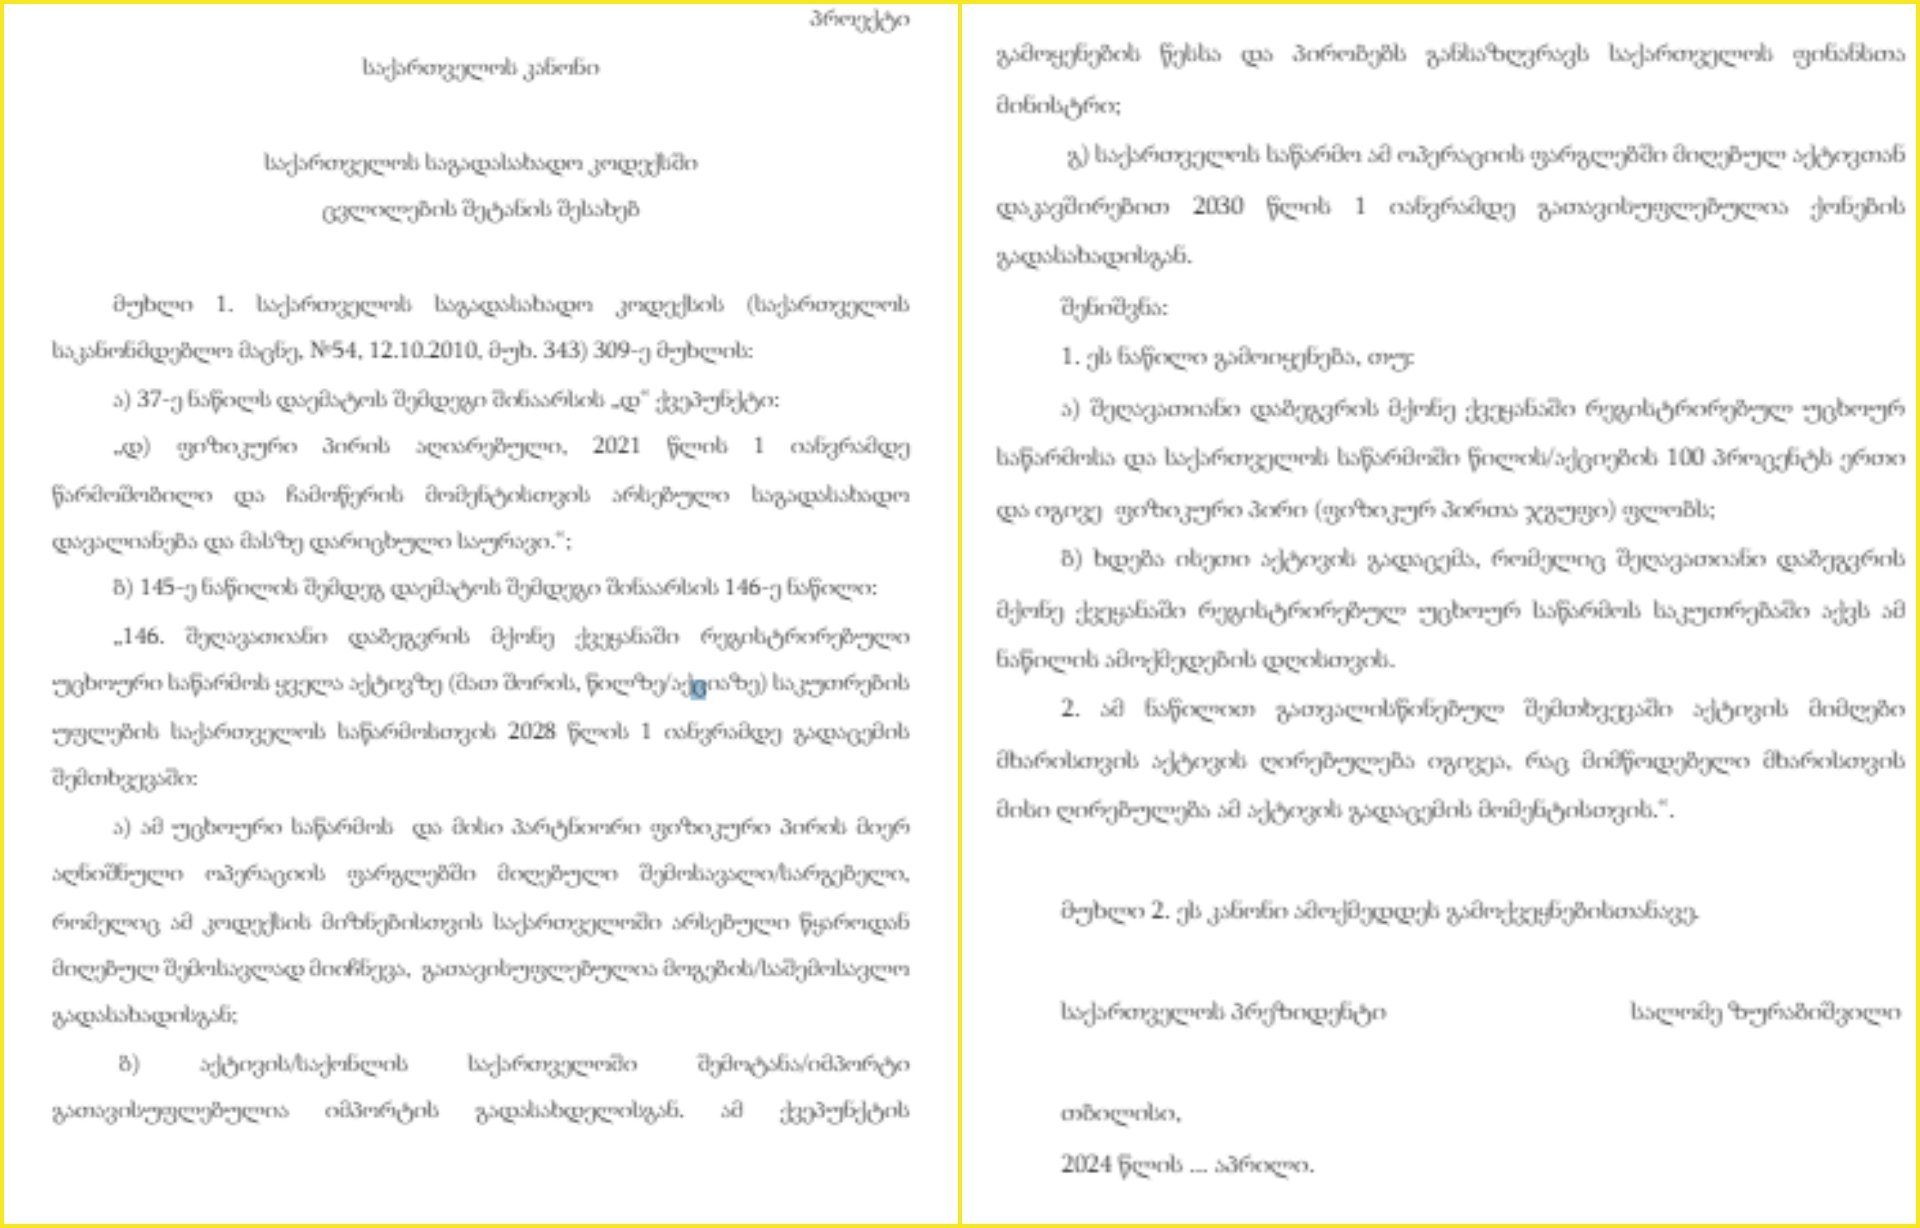 პროექტი
საქართველოს კანონი
საქართველოს საგადასახადო კოდექსში
ცვლილების შეტანის შესახებ
მუხლი 1. საქართველოს საგადასახადო კოდექსის (საქართველოს
საკანონმდებლო მაცნე, №54, 12.10.2010, მუხ. 343) 309-ე მუხლის:
ა) 37-ე ნაწილს დაემატოს შემდეგი შინაარსის „დ“ ქვეპუნქტი:
„დ) ფიზიკური პირის აღიარებული, 2021 წლის 1 იანვრამდე
წარმოშობილი და ჩამოწერის მომენტისთვის არსებული საგადასახადო
დავალიანება და მასზე დარიცხული საურავი.“;
ბ) 145-ე ნაწილის შემდეგ დაემატოს შემდეგი შინაარსის 146-ე ნაწილი:
„146. შეღავათიანი დაბეგვრის მქონე ქვეყანაში რეგისტრირებული
უცხოური საწარმოს ყველა აქტივზე (მათ შორის, წილზე/აქციაზე) საკუთრების
უფლების საქართველოს საწარმოსთვის 2028 წლის 1 იანვრამდე გადაცემის
შემთხვევაში:
ა) ამ უცხოური საწარმოს და მისი პარტნიორი ფიზიკური პირის მიერ
აღნიშნული ოპერაციის ფარგლებში მიღებული შემოსავალი/სარგებელი,
რომელიც ამ კოდექსის მიზნებისთვის საქართველოში არსებული წყაროდან
მიღებულ შემოსავლად მიიჩნევა, გათავისუფლებულია მოგების/საშემოსავლო
გადასახადისგან;
ბ) აქტივის/საქონლის საქართველოში შემოტანა/იმპორტი
გათავისუფლებულია იმპორტის გადასახდელისგან. ამ ქვეპუნქტის
გამოყენების წესსა და პირობებს განსაზღვრავს საქართველოს ფინანსთა
მინისტრი;
გ) საქართველოს საწარმო ამ ოპერაციის ფარგლებში მიღებულ აქტივთან
დაკავშირებით 2030 წლის 1 იანვრამდე გათავისუფლებულია ქონების
გადასახადისგან.
შენიშვნა:
1. ეს ნაწილი გამოიყენება, თუ:
ა) შეღავათიანი დაბეგვრის მქონე ქვეყანაში რეგისტრირებულ უცხოურ
საწარმოსა და საქართველოს საწარმოში წილის/აქციების 100 პროცენტს ერთი
და იგივე ფიზიკური პირი (ფიზიკურ პირთა ჯგუფი) ფლობს;
ბ) ხდება ისეთი აქტივის გადაცემა, რომელიც შეღავათიანი დაბეგვრის
მქონე ქვეყანაში რეგისტრირებულ უცხოურ საწარმოს საკუთრებაში აქვს ამ
ნაწილის ამოქმედების დღისთვის.
2. ამ ნაწილით გათვალისწინებულ შემთხვევაში აქტივის მიმღები
მხარისთვის აქტივის ღირებულება იგივეა, რაც მიმწოდებელი მხარისთვის
მისი ღირებულება ამ აქტივის გადაცემის მომენტისთვის.“.
მუხლი 2. ეს კანონი ამოქმედდეს გამოქვეყნებისთანავე.
საქართველოს პრეზიდენტი სალომე ზურაბიშვილი
თბილისი,
2024 წლის ... აპრილი.